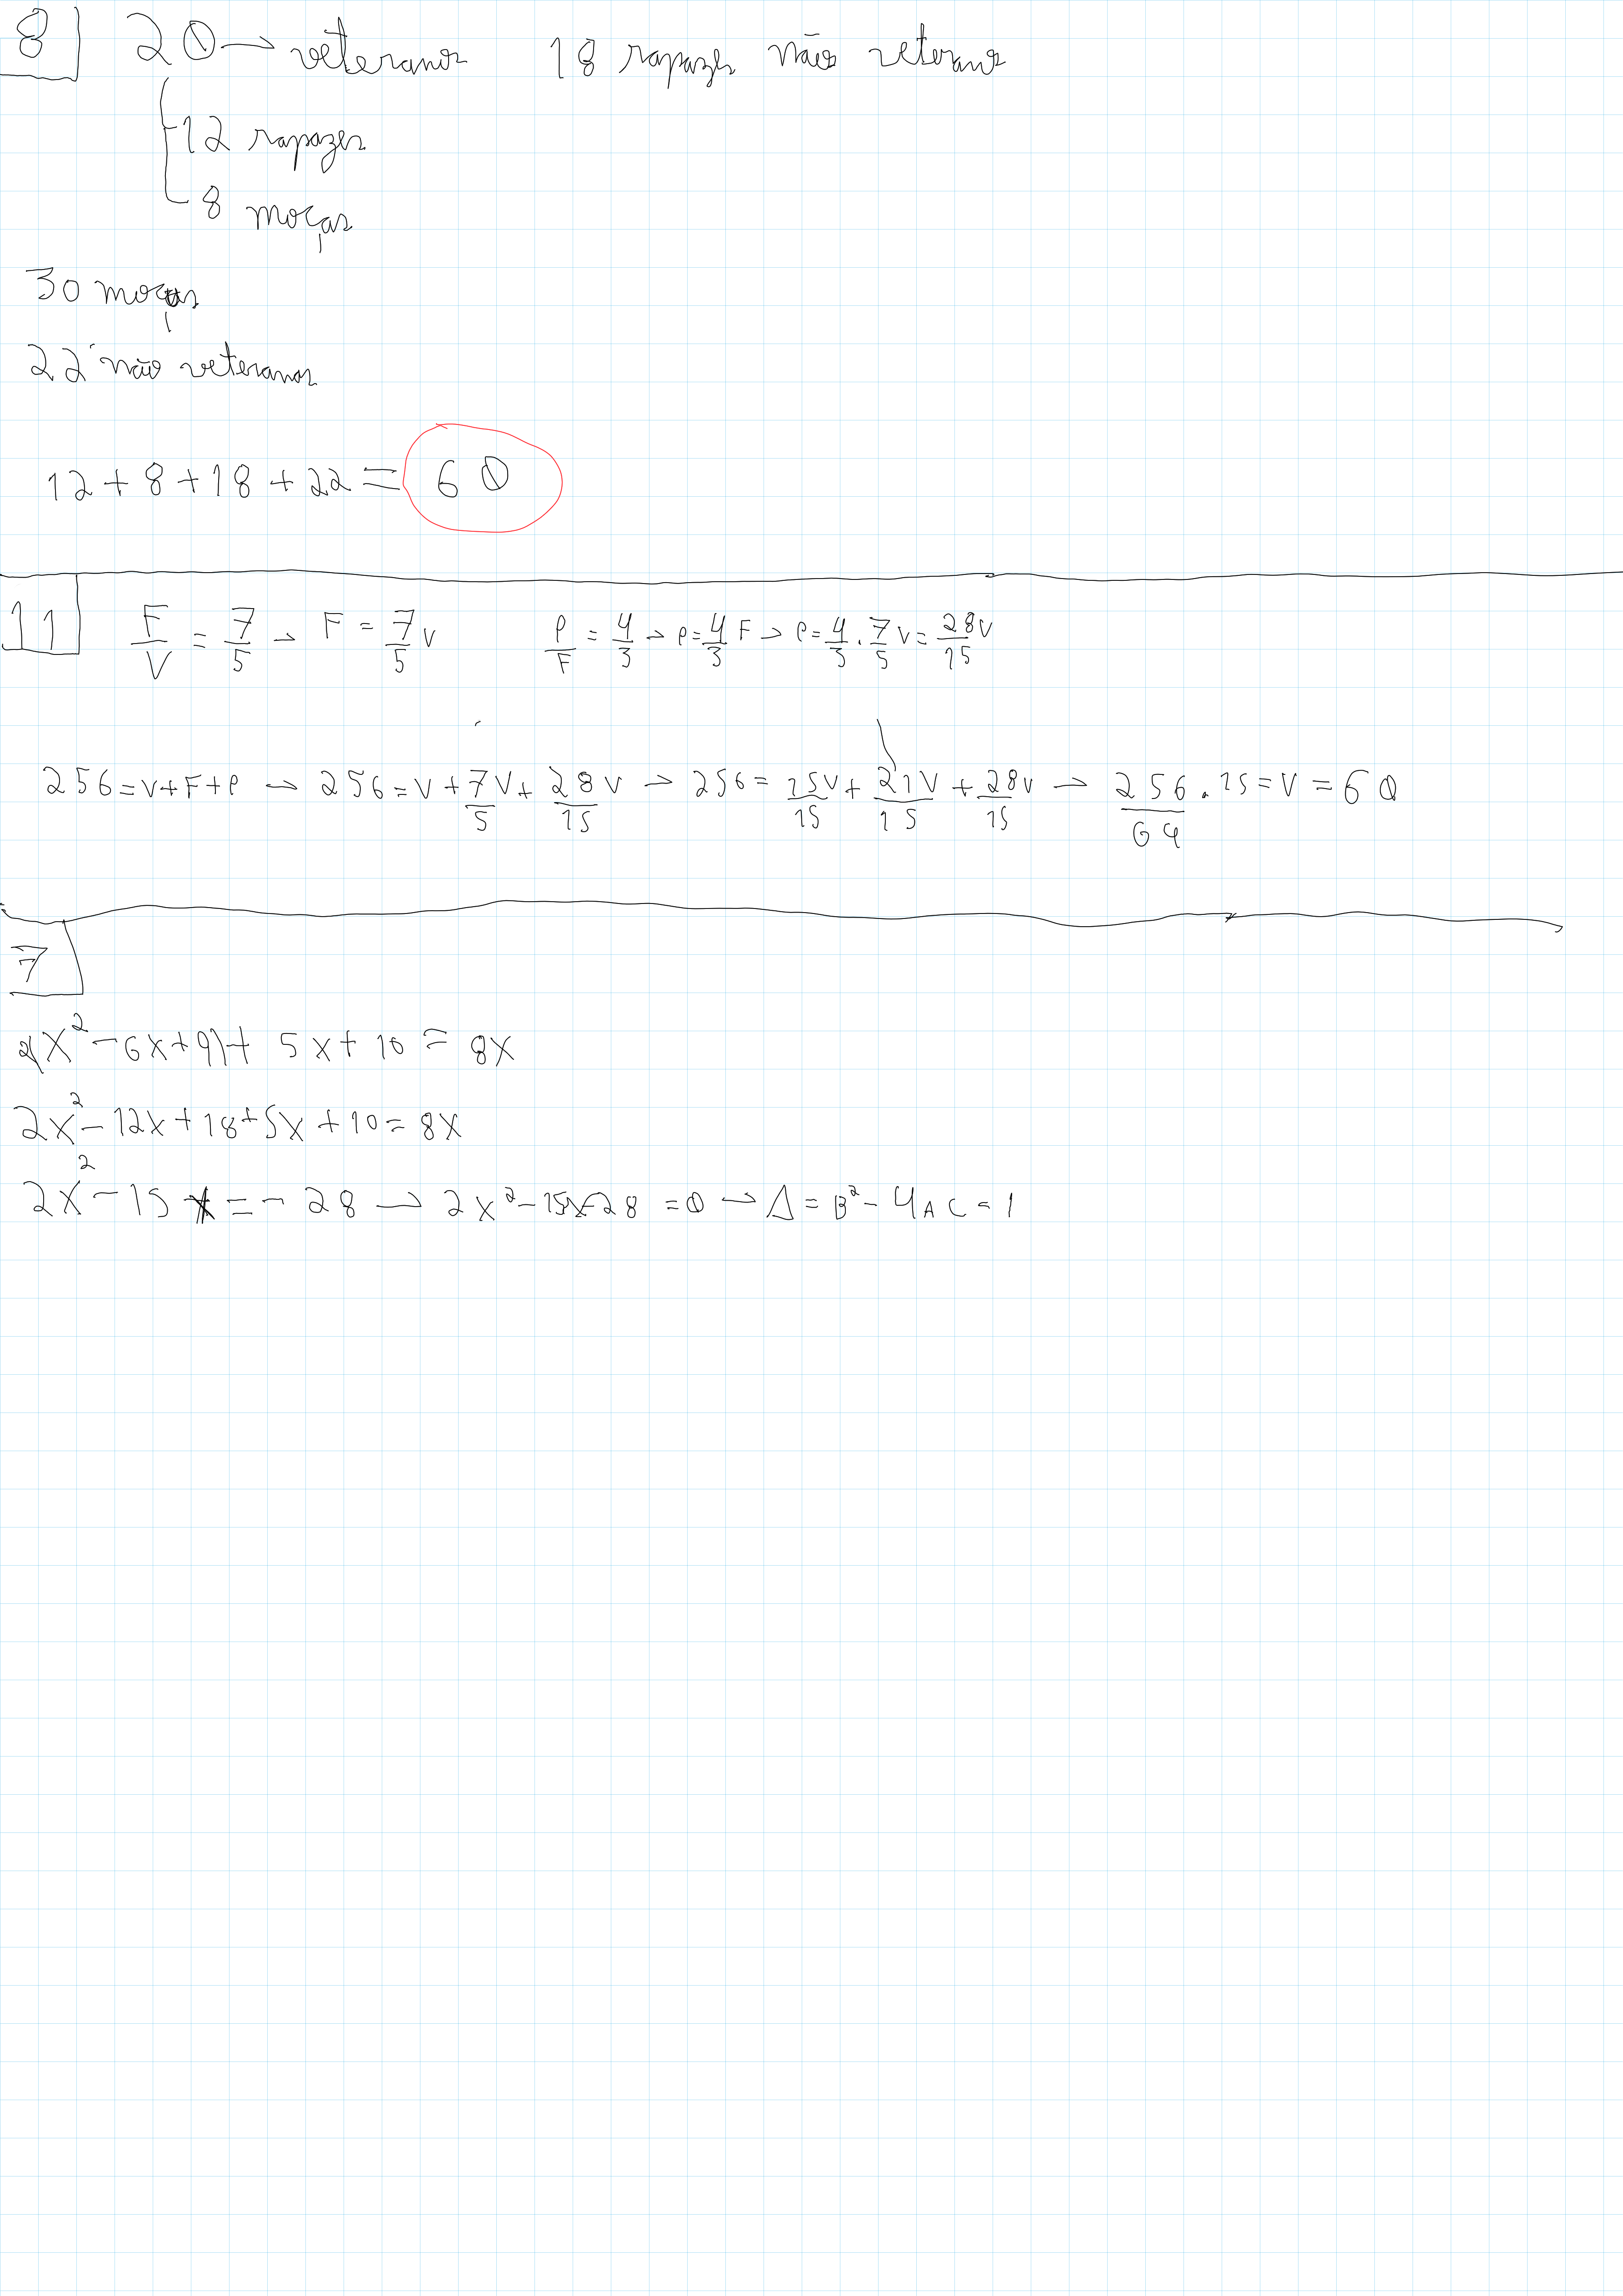 8 20 → veteranos 18 rapazes não veterano
12 rapazes
8 moças
30 moças
22 não veteranas
12 + 8 + 18 + 22 = 60
11 F/V = 7/5 → F = 7/5 V P/F = 4/3 → P = 4/3 F → P = 4/3 . 7/5 V = 28V/15
256 = V + F + P → 256 = V + 7V/5 + 28V/15 → 256 = 15V/15 + 21V/15 + 28V/15 → 256/64 . 15 = V = 60
7
2(X² - 6X + 9) + 5X + 10 = 8X
2X² - 12X + 18 + 5X + 10 = 8X
2X² - 15X = - 28 → 2X² - 15X - 28 = 0 → Δ = B² - 4AC = 1